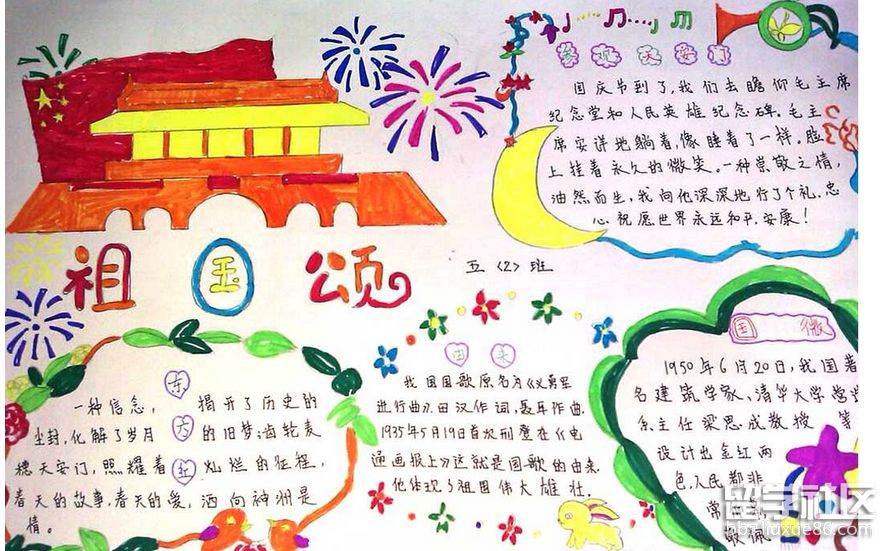 祖国颂
五〈2〉班
参观天安门
国庆节到了,我们去瞻仰毛主席
纪念堂和人民英雄纪念碑。毛主
席安详地躺着,像睡着了一样。脸
上挂着永久的微笑。一种崇敬之情,
油然而生,我向他深深地行了个礼。忠
心祝愿世界永远和平,安康!
东方红
一种信念,揭开了历史的
尘封,化解了岁月的旧梦,齿轮表
穗天安门,照耀着灿烂的征程,
春天的故事,春天的爱,洒向神洲是
情。
由来
我国国歌原名为《义勇军
进行曲》,田汉作词,聂耳作曲.
1935年5月19日首次刊登在《电
通画报上》这就是国歌的由来.
他体现了祖国伟大雄壮.
国徽
1950年6月20日,我国著
名建筑学家、清华大学营学
系主任梁思成教授等
设计出金红两
色,人民都非
常
敬佩
留学社区
bbs.liuxue86.com